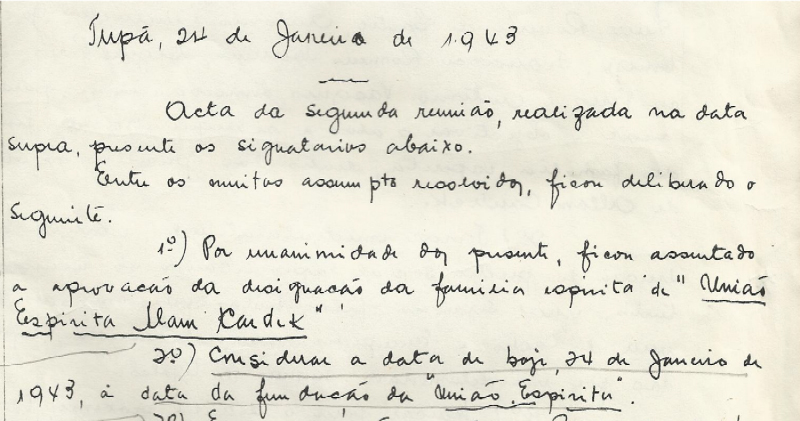 Tupã, 24 de Janeiro de 1943
Acta da segunda reunião, realizada na data
supra, presente os signatarios abaixo.
Entre os muitos assumpto resolvidos, ficou deliberado o
seguinte.
1º) Por unanimidade dos presente, ficou assentado
a aprovação da designação da familia espirita de "União
Espirita Allam Kardek"
2º) Considerar a data de hoje, 24 de Janeiro de
1943, a data da fundação da "União Espirita".
3º)